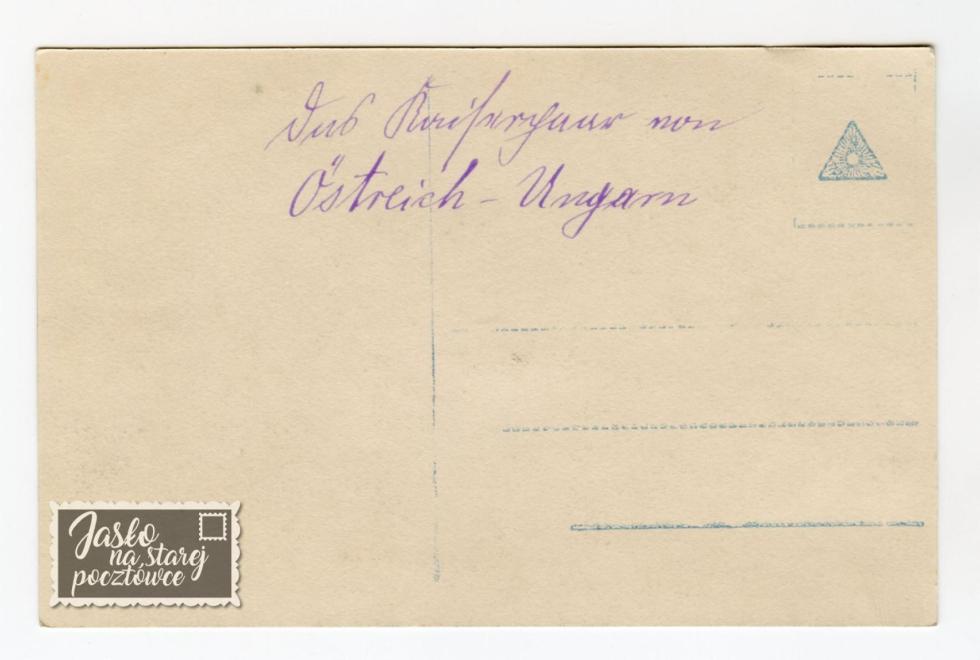 Das Kaiserpaar von
Östreich - Ungarn
Jasło
na starej
pocztówce